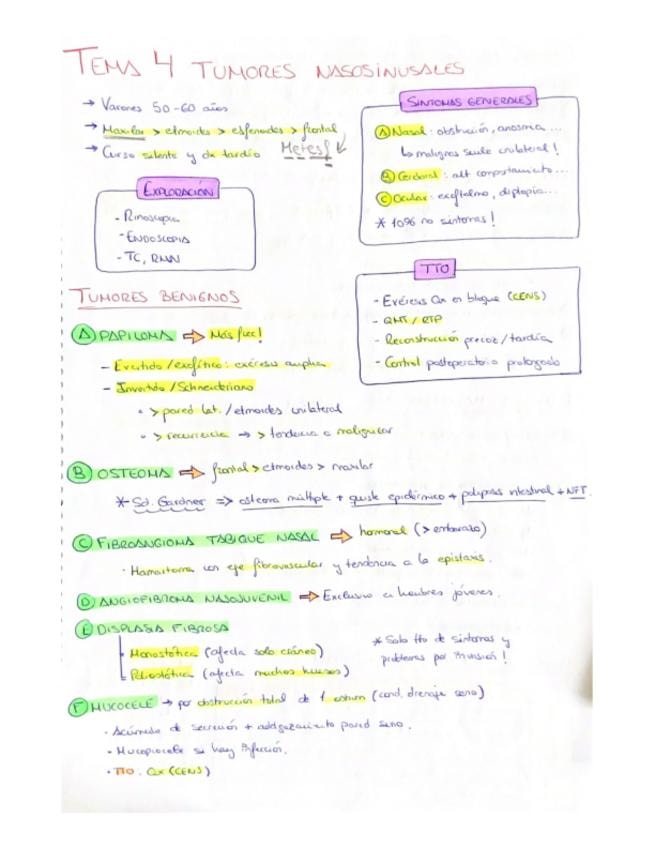 TEMA 4 TUMORES NASOSINUSALES
→ Varones 50-60 años
→ Maxilar > etmoides > esfenoides > frontal
→ Curso silente y dx tardío
SÍNTOMAS GENERALES
A Nasal: obstrucción, anosmia...
↳ malignos suele unilateral!
B Cerebral: alt comportamiento...
C Ocular: exoftalmo, diplopia...
* 10% no síntomas!
EXPLORACIÓN
- Rinoscopia
- ENDOSCOPIA
- TC, RMN
TTO
- Exéresis Qx en bloque (CENS)
- QMT / RTP
- Reconstrucción precoz/tardía
- Control postoperatorio prolongado
TUMORES BENIGNOS
A PAPILOMA ⇒ Más frec!
- Evertido/exofítico: exéresis amplia
- Invertido/Schneideriano
◦ > pared lat./etmoides unilateral
◦ > recurrencia → > tendencia a malignizar
B OSTEOMA ⇒ frontal > etmoides > maxilar
* Sd. Gardner => osteoma múltiple + quiste epidérmico + poliposis intestinal + NFT.
C FIBROANGIOMA TABIQUE NASAL ⇒ hormonal (> embarazo)
· Hamartoma con eje fibrovascular y tendencia a la epistaxis.
D ANGIOFIBROMA NASOJUVENIL ⇒ Exclusivo en hombres jóvenes.
E DISPLASIA FIBROSA
Monostótica (afecta solo cráneo)
Poliostótica (afecta muchos huesos)
* Solo tto de síntomas y
problemas por invasión!
F MUCOCELE → por obstrucción total de 1 ostium (cond. drenaje seno)
· Acúmulo de secreción + adelgazamiento pared seno.
· Mucopiocele si hay infección.
· TTO. Qx (CENS)